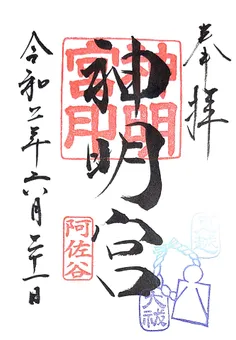 奉拝
神明宮
神明
宮印
阿佐谷
令和二年六月二十一日
夏越
大祓